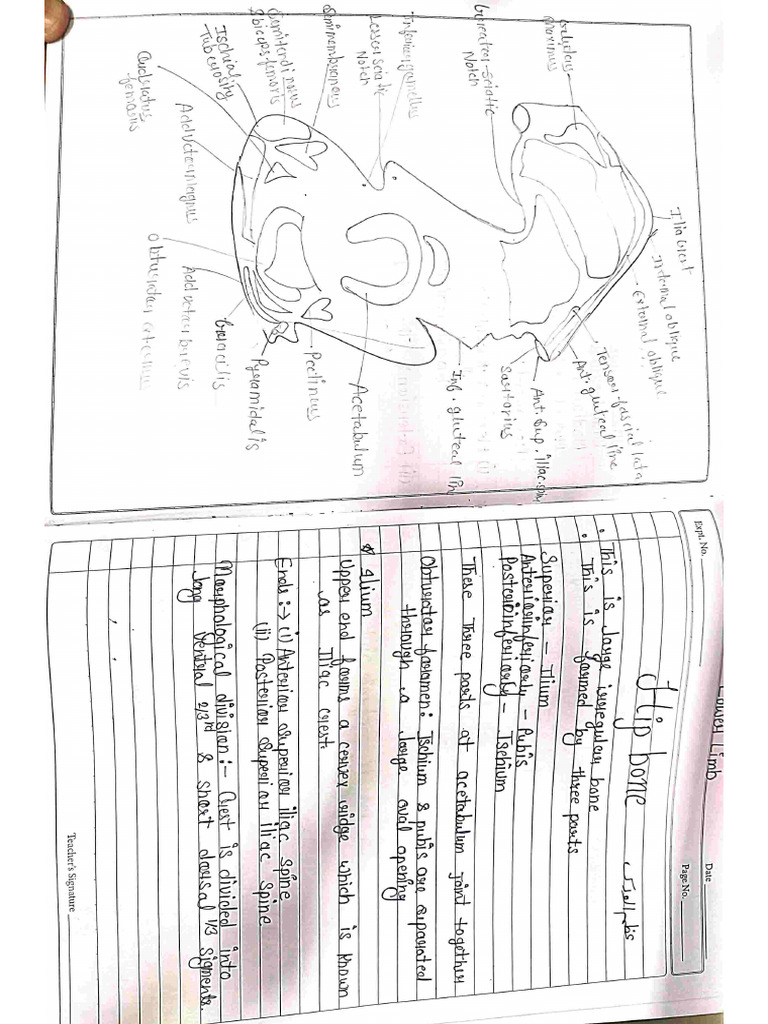 Gluteus
maximus
Greater-sciatic
Notch
Inferior gemellus
Lesser sciatic
Notch
Semimembranous
Semitendinosus
& biceps femoris
Ischial
Tuberosity
Quadratus
femoris
Adductor magnus
Obturator externus
Adductor brevis
Gracilis
Pyramidalis
Pectineus
Acetabulum
Inf. gluteal lin
Sartorius
Ant. Sup. iliac spin
Ant. gluteal line
Tensor fascial lata
External oblique
Internal oblique
Ilia crest
Lower Limb
Expt. No.
Date
Page No.
Hip bone
• This is large irregular bone
• This is formed by three parts
Superior - Ilium
Anterioinferiorly - Pubis
Posterioinferiorly - Ischium
These three parts at acetabulum joint together
Obturator foramen: Ischium & pubis are separated
through a large oval opening
Ilium
Upper end forms a convex ridge which is known
as Iliac crest.
Ends :→ (i) Anterior superior iliac spine
(ii) Posterior superior iliac spine
Morphological division:- Crest is divided into
long ventral 2/3rd & short dorsal 1/3 sigments.
Teacher's Signature